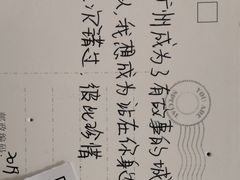 广州成为了有故事的城
人,我想成为站在你身边
次错过,彼此珍惜
邮政编码: